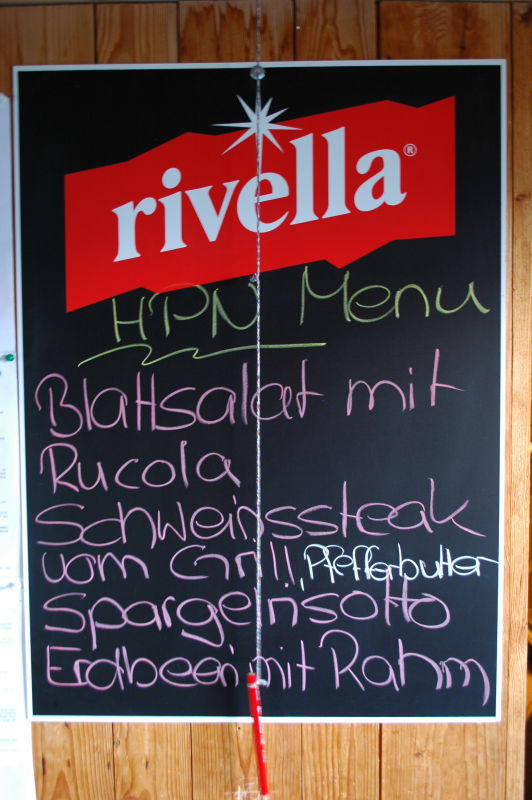 rivella®
H'PN Menu
Blattsalat mit
Rucola
Schweinssteak
vom Grill, Pfefferbutter
Spargelrisotto
Erdbeeri mit Rahm